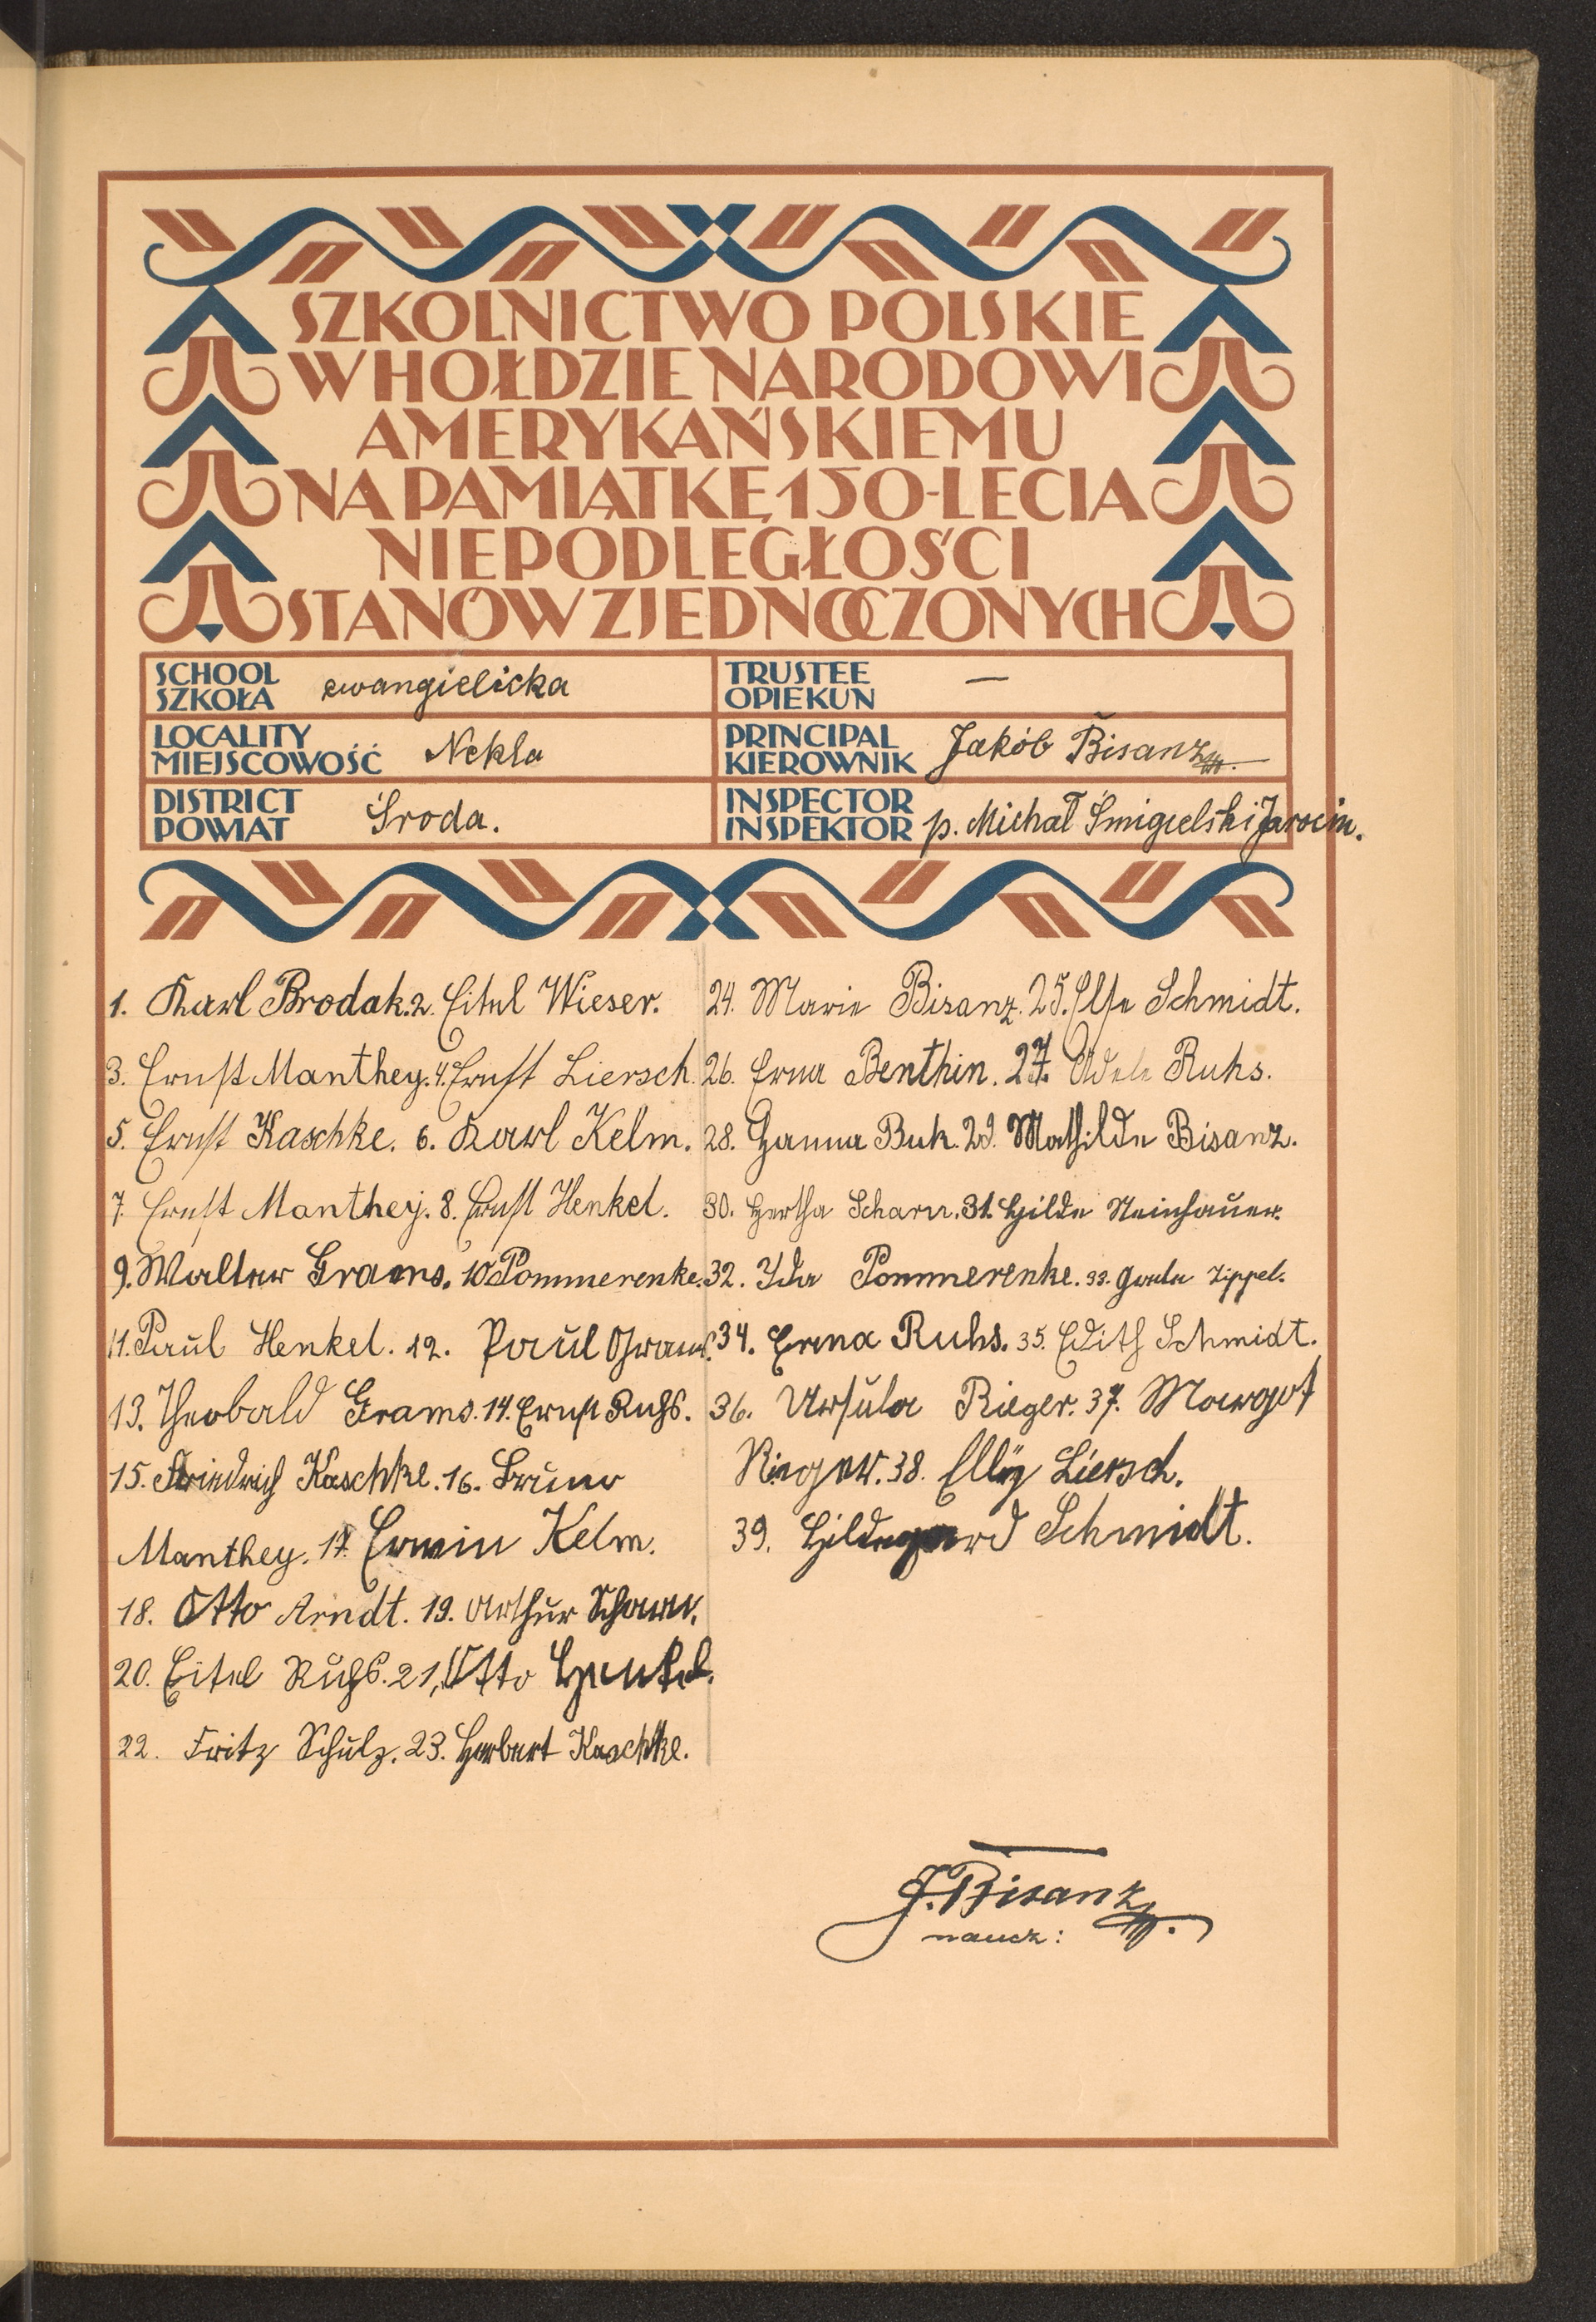 SZKOLNICTWO POLSKIE
W HOŁDZIE NARODOWI
AMERYKAŃSKIEMU
NA PAMIĄTKĘ 150-LECIA
NIEPODLEGŁOŚCI
STANÓW ZJEDNOCZONYCH
SCHOOL
SZKOŁA ewangielicka
LOCALITY
MIEJSCOWOŚĆ Nekla
DISTRICT
POWIAT Środa.
TRUSTEE
OPIEKUN —
PRINCIPAL
KIEROWNIK Jakób Bisanz
INSPECTOR
INSPEKTOR p. Michał Śmigielski Jarocin.
1. Karl Brodak. 2. Eitel Wieser.
3. Ernst Manthey. 4. Ernst Liersch.
5. Ernst Kaschke. 6. Karl Kelm.
7. Ernst Manthey. 8. Ernst Henkel.
9. Walter Grams. 10 Pommerenke.
11. Paul Henkel. 12. Paul Grams.
13. Theobald Grams. 14. Ernst Ruhs.
15. Friedrich Kaschke. 16. Bruno
Manthey. 17. Erwin Kelm.
18. Otto Arndt. 19. Arthur Scharn.
20. Eitel Ruhs. 21. Otto Henkel.
22. Fritz Schulz. 23. Herbert Kaschke.
24. Marie Bisanz. 25. Else Schmidt.
26. Erna Benthin. 27. Adele Ruhs.
28. Hanna Buk. 29. Mathilde Bisanz.
30. Hertha Scharn. 31. Hilde Steinhauer.
32. Ida Pommerenke. 33. Zippel.
34. Erna Ruhs. 35. Edith Schmidt.
36. Ursula Rieger. 37. Margot
Rieger. 38. Elly Liersch.
39. Hildegard Schmidt.
J. Bisanz
naucz: